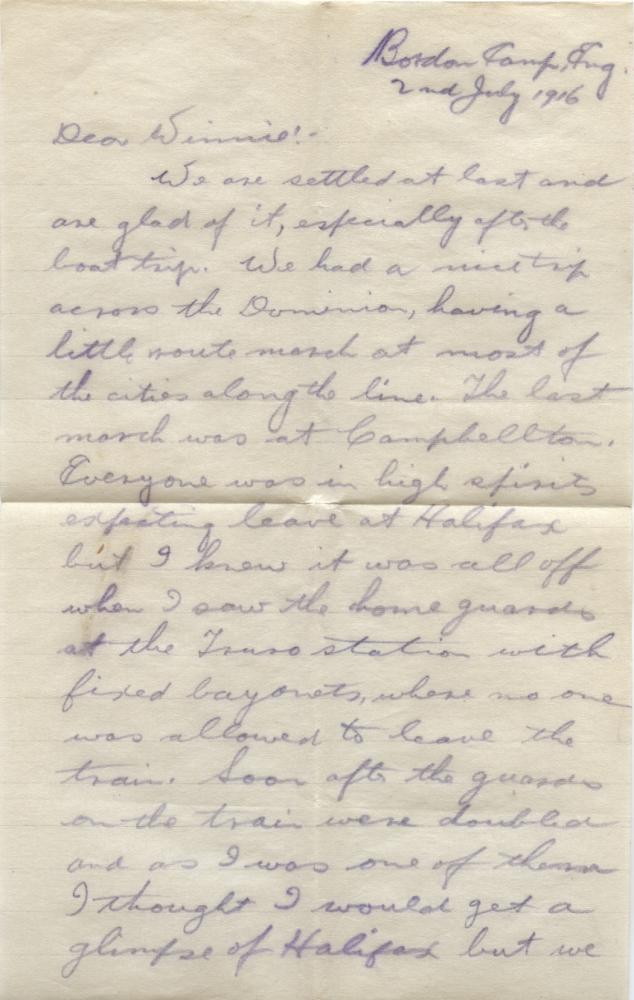 Bordon Camp, Eng.
2nd July 1916
Dear Winnie!-
We are settled at last and
are glad of it, especially after the
boat trip. We had a nice trip
across the Dominion, having a
little route march at most of
the cities along the line. The last
march was at Campbellton.
Everyone was in high spirits
expecting leave at Halifax
but I knew it was all off
when I saw the home guards
at the Truro station with
fixed bayonets, where no one
was allowed to leave the
train. Soon after the guards
on the train were doubled
and as I was one of them
I thought I would get a
glimpse of Halifax but we